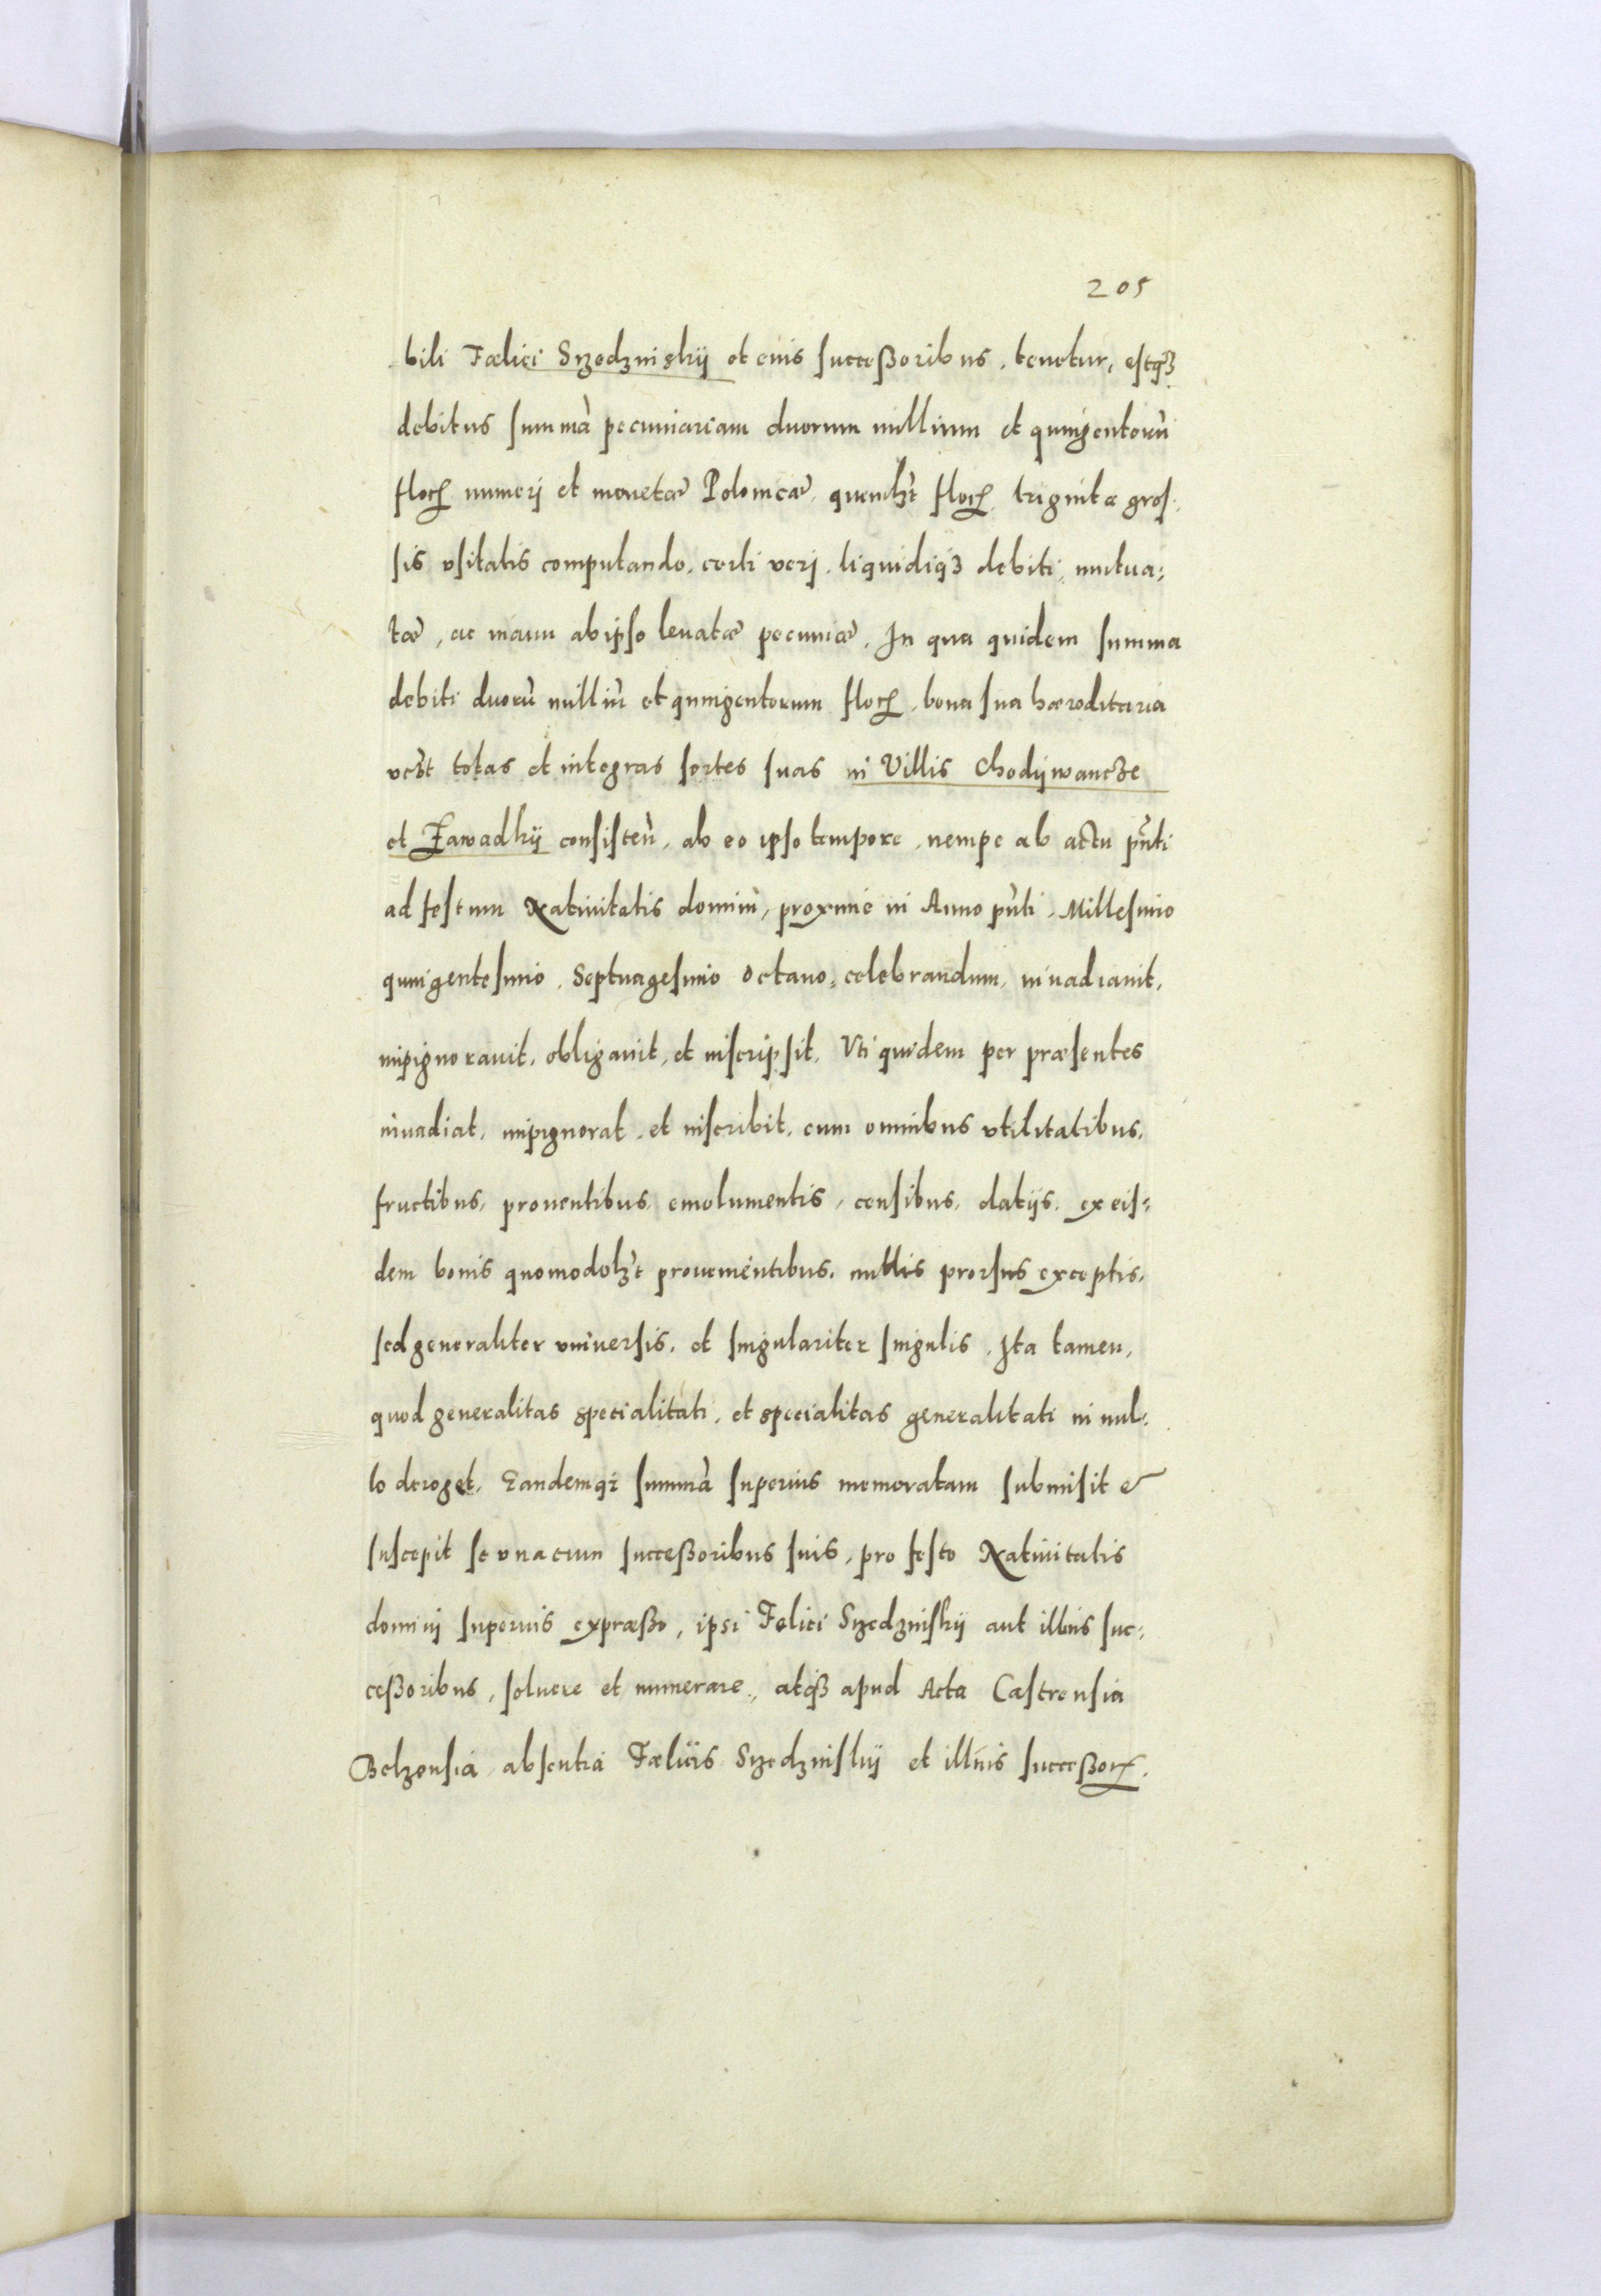 205
bili Fælici Srzedzniskij et eius successoribus, tenetur, estq3
debitus summã pecuniariam duorum millium et quingentorũ
floꝝ numerj et monetæ Polonicæ, quemlꝫt floꝝ triginta gros,
sis vsitatis computando, certi verj, liquidiq3 debiti, mutua:
tæ, ac manu ab ipso leuatæ pecuniæ, In qua quidem summa
debiti duorũ milliũ et quingentorum floꝝ, bona sua hæreditaria
vꝫt totas et integras sortes suas in Villis Chodijwancze
et Zawadkij consisteñ, ab eo ipso tempore, nempe ab actu pñti
ad festum Natiuitatis dominj, proxime in Anno pñti, Millesimo
quingentesimo, Septuagesimo octauo, celebrandum, inuadiauit,
impignorauit, obligauit, et inscripsit, Vti quidem per præsentes
inuadiat, impignorat, et inscribit, cum omnibus vtilitatibus,
fructibus, prouentibus, emolumentis, censibus, datijs, ex eis:
dem bonis quomodolꝫt prouenientibus, nullis prorsus exceptis,
sed generaliter vniuersis, et singulariter singulis, Ita tamen,
quod generalitas specialitati, et specialitas generalitati in nul:
lo deroget, Eandemq3 summã superius memoratam submisit &
suscepit se vna cum successoribus suis, pro festo Natiuitatis
dominj superius expræsso, ipsi Felici Srzedzniskij aut illius suc:
cessoribus, soluere et numerare, atq3 apud Acta Castrensia
Belzensia, absentia Fælicis Srzedzniskij et illius successoꝝ,